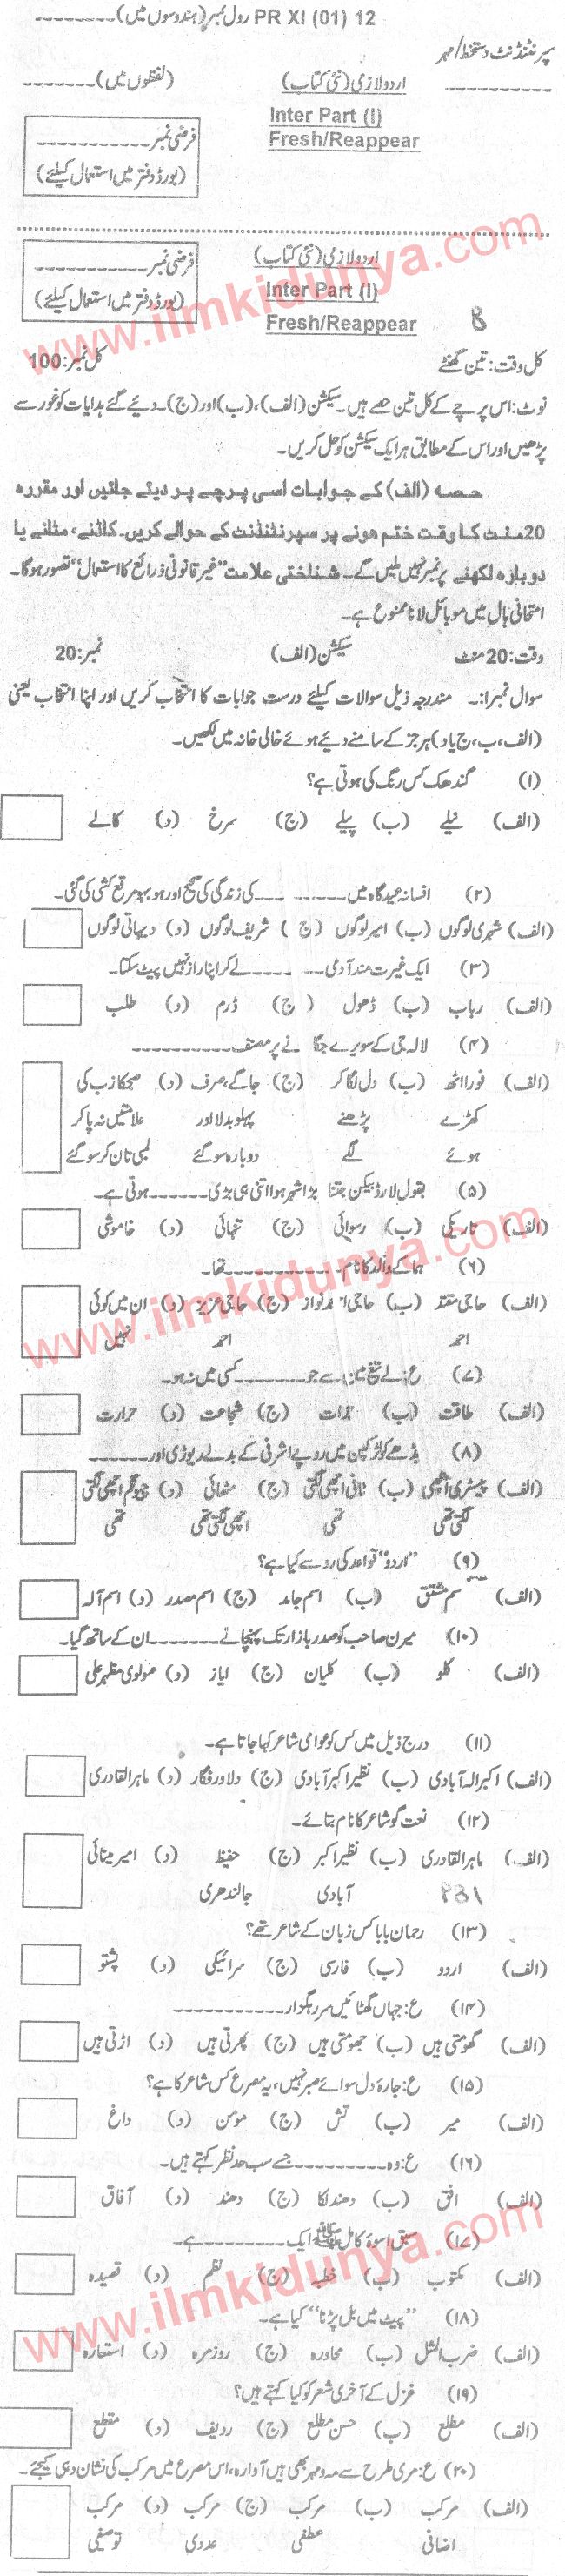 PR XI (01) 12 رول نمبر (ہندسوں میں)ـــــــــــ
سپرنٹنڈنٹ دستخط/مہر
ــــــــــــ
اردو لازمی (نئی کتاب)
(لفظوں میں)ـــــــــــ
Inter Part (I)
Fresh/Reappear
فرضی نمبرـــــــــــــ
(بورڈ دفتر میں استعمال کیلئے)
اردو لازمی (نئی کتاب)
Inter Part (I)
Fresh/Reappear
B
فرضی نمبرـــــــــــــ
(بورڈ دفتر میں استعمال کیلئے)
www.ilmkidunya.com
کل وقت: تین گھنٹے کل نمبر: 100
نوٹ: اس پرچے کے کل تین حصے ہیں۔ سیکشن (الف)، (ب) اور (ج)۔ دئیے گئے ہدایات کو غور سے
پڑھیں اور اس کے مطابق ہر ایک سیکشن کو حل کریں۔
حصہ (الف) کے جوابات اسی پرچے پر دیئے جائیں اور مقررہ
20 منٹ کا وقت ختم ہونے پر سپرنٹنڈنٹ کے حوالے کریں۔ کاٹنے، مٹانے یا
دوبارہ لکھنے پر نمبر نہیں ملیں گے۔ شناختی علامت "غیر قانونی ذرائع کا استعمال" تصور ہوگا۔
امتحانی ہال میں موبائل لانا ممنوع ہے۔
وقت: 20 منٹ سیکشن (الف) نمبر: 20
سوال نمبر ا:۔ مندرجہ ذیل سوالات کیلئے درست جوابات کا انتخاب کریں اور اپنا انتخاب یعنی
(الف، ب، ج یا د) ہر جز کے سامنے دئیے ہوئے خالی خانہ میں لکھیں۔
(۱) گندھک کس رنگ کی ہوتی ہے؟
(الف) نیلے (ب) پیلے (ج) سرخ (د) کالے
(۲) افسانہ عیدگاہ میں ـــــــــــ کی زندگی کی صحیح اور ہوبہو مرقع کشی کی گئی۔
(الف) شہری لوگوں (ب) امیر لوگوں (ج) شریف لوگوں (د) دیہاتی لوگوں
(۳) ایک غیرت مند آدمی ـــــــــ لے کر اپنا راز نہیں پیٹ سکتا۔
(الف) رباب (ب) ڈھول (ج) ڈرم (د) طلب
(۴) لالہ جی کے سویرے جگانے پر مصنف ـــــــــــ
(الف) فورا اٹھ (ب) دل لگا کر (ج) جاگے، صرف (د) صبح کاذب کی
کھڑے پڑھنے پہلو بدلا اور علامتیں نہ پا کر
ہوئے لگے دوبارہ سو گئے لمبی تان کر سو گئے
(۵) بقول لارڈ بیکن جتنا بڑا شہر ہوا اتنی ہی بڑی ـــــــــ ہوتی ہے۔
(الف) تاریکی (ب) رسوائی (ج) تنہائی (د) خاموشی
www.ilmkidunya.com
(۶) ہما کے والد کا نام ـــــــــــ تھا۔
(الف) حاجی مقتد (ب) حاجی احمد نواز (ج) حاجی عزیز (د) ان میں کوئی
احمد احمد نہیں
(۷) ع: لے تیغ میں اسے جو ـــــــــ کسی میں نہ ہو۔
(الف) طاقت (ب) جرات (ج) شجاعت (د) حرارت
(۸) بڈھے کو لڑکپن میں روپے اشرفی کے بدلے ریوڑی اور ـــــــــ
(الف) پیسٹری اچھی (ب) ٹافی اچھی لگتی (ج) مٹھائی (د) چیونگم اچھی لگتی
لگتی تھی تھی اچھی لگتی تھی تھی
(۹) "اردو" قواعد کی رو سے کیا ہے؟
(الف) اسم مشتق (ب) اسم جامد (ج) اسم مصدر (د) اسم آلہ
(۱۰) میرن صاحب کو صدر بازار تک پہنچانے ـــــــــ ان کے ساتھ گیا۔
(الف) کلو (ب) کلیان (ج) ایاز (د) مولوی مظہر علی
(۱۱) درج ذیل میں کس کو عوامی شاعر کہا جاتا ہے۔
(الف) اکبر الہ آبادی (ب) نظیر اکبر آبادی (ج) دلاور فگار (د) ماہر القادری
(۱۲) نعت گو شاعر کا نام بتائے۔
(الف) ماہر القادری (ب) نظیر اکبر (ج) حفیظ (د) امیر مینائی
آبادی جالندھری
(۱۳) رحمان بابا کس زبان کے شاعر تھے؟
(الف) اردو (ب) فارسی (ج) سرائیکی (د) پشتو
(۱۴) ع: جہاں گھٹائیں سر رہگزار ـــــــــــ
(الف) گھومتی ہیں (ب) جھومتی ہیں (ج) پھرتی ہیں (د) اڑتی ہیں
(۱۵) ع: چارۂ دل سوائے صبر نہیں، یہ مصرع کس شاعر کا ہے؟
(الف) میر (ب) آتش (ج) مومن (د) داغ
(۱۶) ع: وہ ـــــــــ جسے سب حد نظر کہتے ہیں۔
(الف) افق (ب) دھندلکا (ج) دھند (د) آفاق
www.ilmkidunya.com
(۱۷) سبق اسوۂ کامل ﷺ ایک ـــــــــ ہے۔
(الف) مکتوب (ب) خطبہ (ج) نظم (د) قصیدہ
(۱۸) "پیٹ میں بل پڑنا" کیا ہے۔
(الف) ضرب المثل (ب) محاورہ (ج) روزمرہ (د) استعارہ
(۱۹) غزل کے آخری شعر کو کیا کہتے ہیں؟
(الف) مطلع (ب) حسن مطلع (ج) ردیف (د) مقطع
(۲۰) ع: مری طرح سے مہ و مہر بھی ہیں آوارہ، اس مصرع میں مرکب کی نشان دہی کیجئے۔
(الف) مرکب (ب) مرکب (ج) مرکب (د) مرکب
اضافی عطفی عددی توصیفی